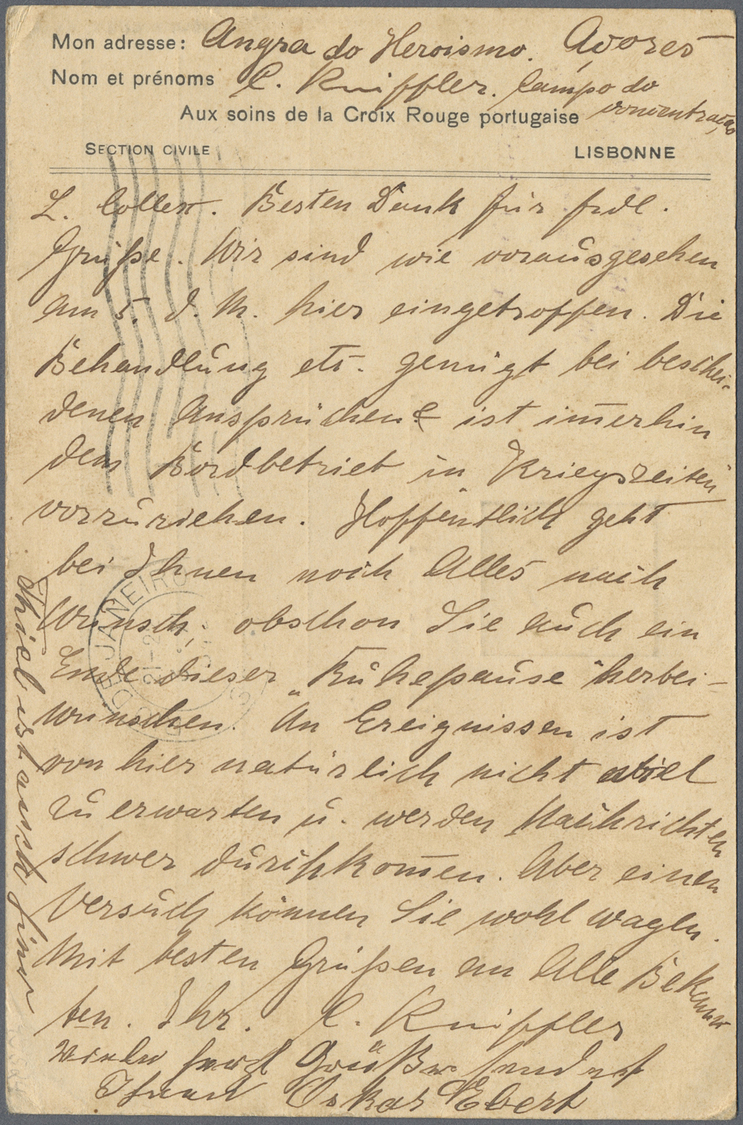 Mon adresse: Angra do Heroismo. Açores
Nom et prénoms C. Kniffler. Campo de
concentração
Aux soins de la Croix Rouge portugaise
SECTION CIVILE LISBONNE
L. Besten Dank für frdl.
Grüße. Wir sind wie vorausgesehen
am 5. d. M. hier eingetroffen. Die
Behandlung etc. genügt bei beschei-
denen Ansprüchen & ist im̄erhin
dem Bordbetrieb in Kriegszeiten
vorzuziehen. Hoffentlich geht
bei Ihnen noch Alles nach
Wunsch. obschon Sie auch ein
Ende dieser "Ruhepause" herbei-
wünschen. An Ereignissen ist
von hier natürlich nicht viel
zu erwarten u. werden Nachrichten
schwer durchkom̄en. Aber einen
Versuch können Sie wohl wagen.
Mit besten Grüßen an Alle Bekann
ten. Ihr. C. Kniffler
Grüße sendet
Ihnen Oskar Ebert
Thiel ist auch hier
JANEIRO